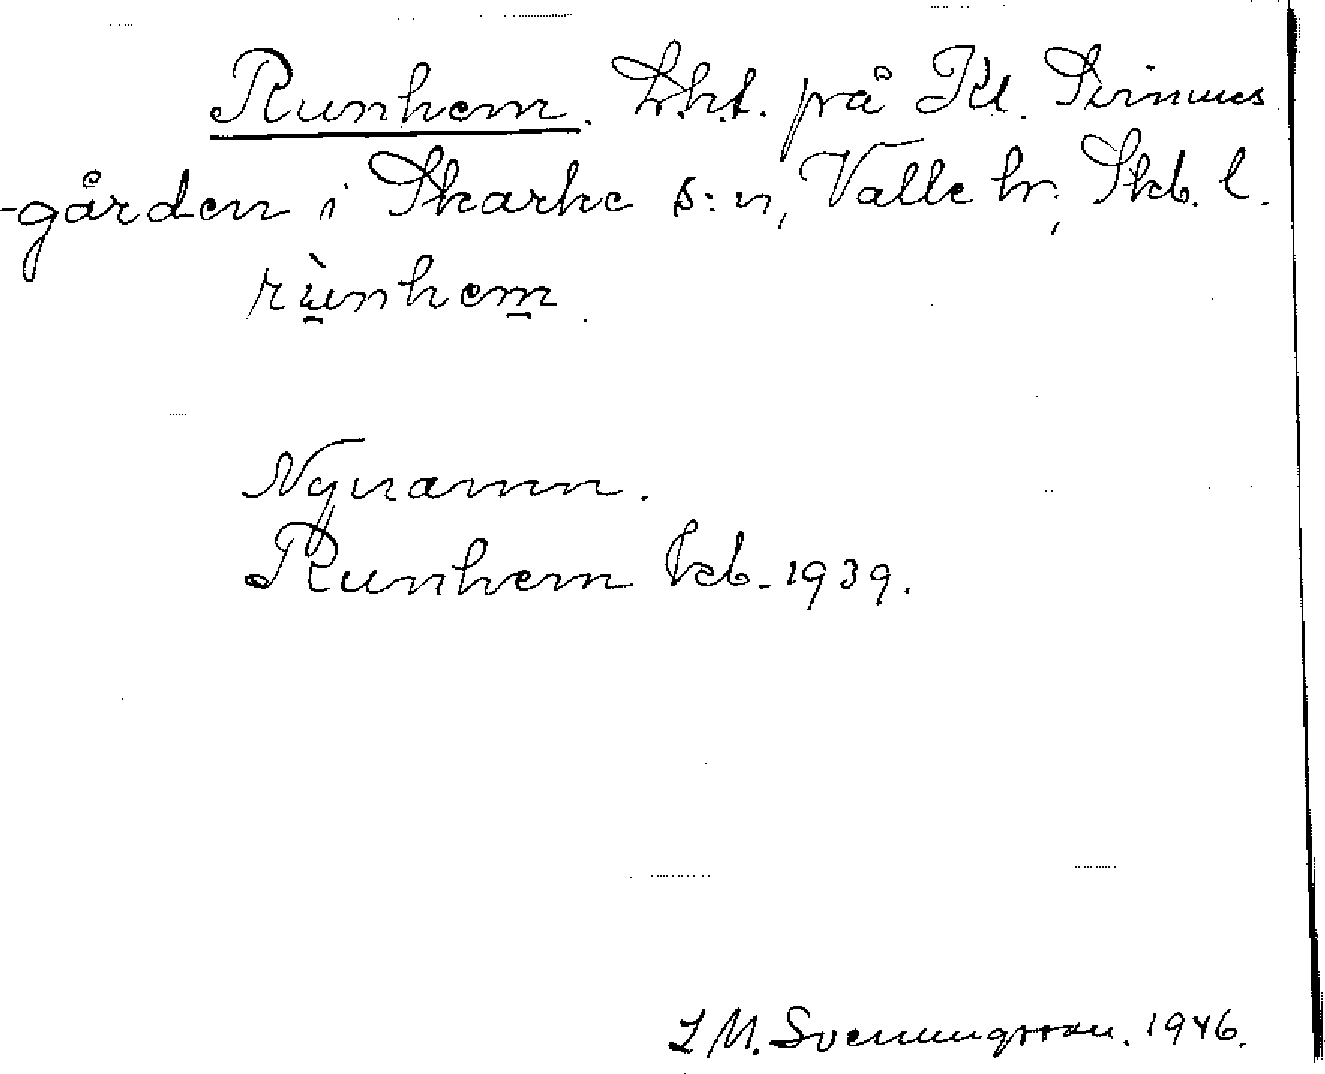 Runhem. Lht. på Kl. Simmes
-gården i Skarke s:n, Valle hr, Skb. l.
rùnhem
Nynamn.
Runhem kb. 1939.
L M. Svenungsson. 1946.